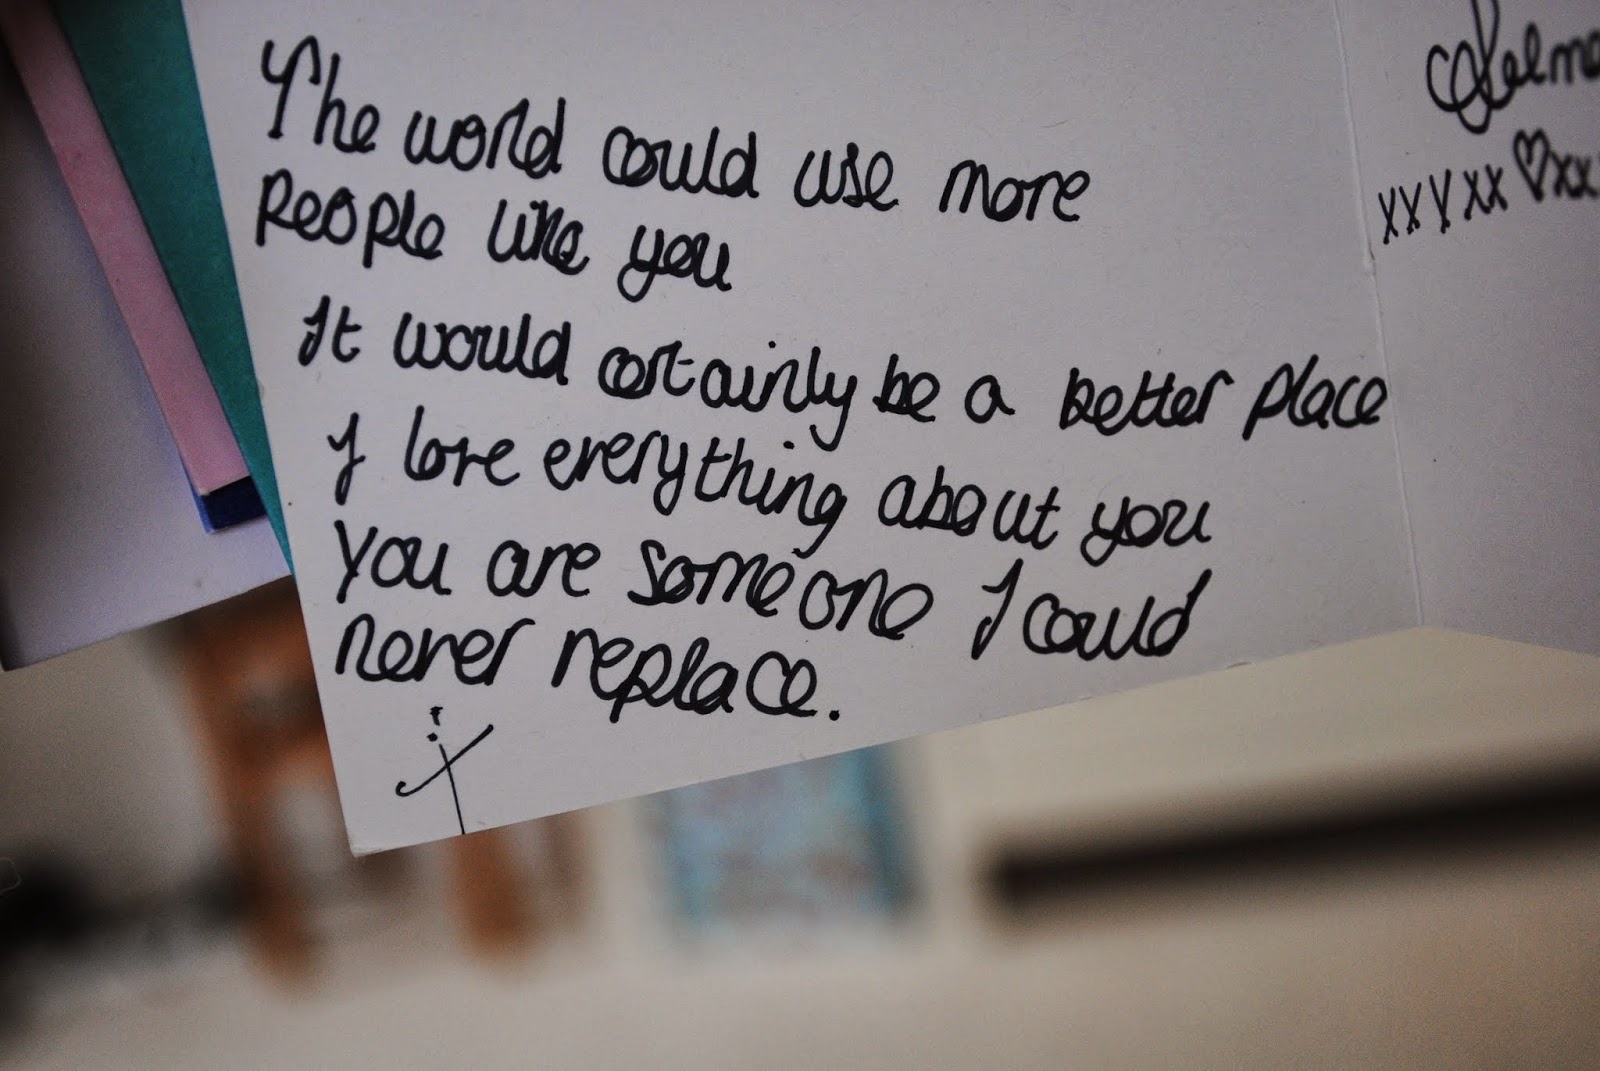 The world could use more
People like you
It would certainly be a better place
I love everything about you
You are someone I could
never replace.
xxyxx♡xx